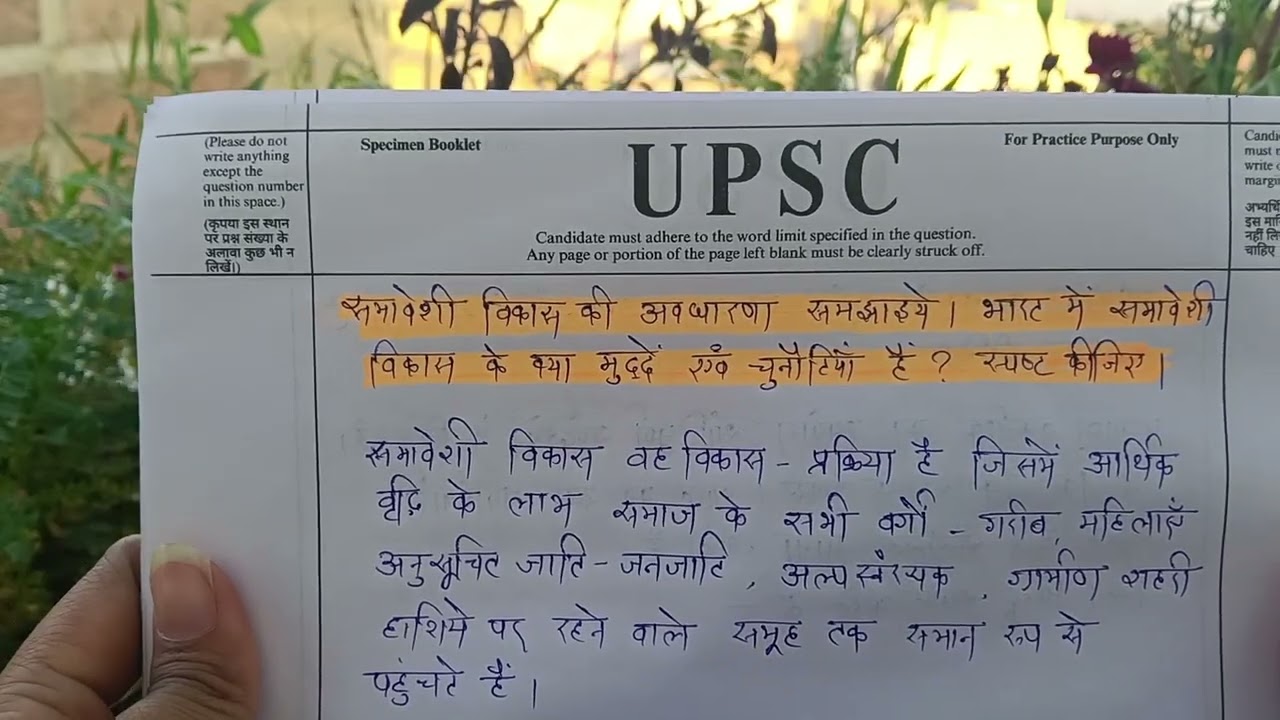 (Please do not
write anything
except the
question number
in this space.)
(कृपया इस स्थान
पर प्रश्न संख्या के
अलावा कुछ भी न
लिखें।)
Specimen Booklet
UPSC
For Practice Purpose Only
Candidate must adhere to the word limit specified in the question.
Any page or portion of the page left blank must be clearly struck off.
Candi
must n
write
margi
अभ्यर्थि
इस
नहीं लि
चाहिए
समावेशी विकास की अवधारणा समझाइये। भारत में समावेशी
विकास के क्या मुद्दें एवं चुनौतियाँ हैं? स्पष्ट कीजिए।
समावेशी विकास वह विकास - प्रक्रिया है जिसमें आर्थिक
वृद्धि के लाभ समाज के सभी वर्गों - गरीब, महिलाएँ
अनुसूचित जाति - जनजाति, अल्पसंख्यक, ग्रामीण शहरी
हाशिये पर रहने वाले समूह तक समान रूप से
पहुंचते हैं।